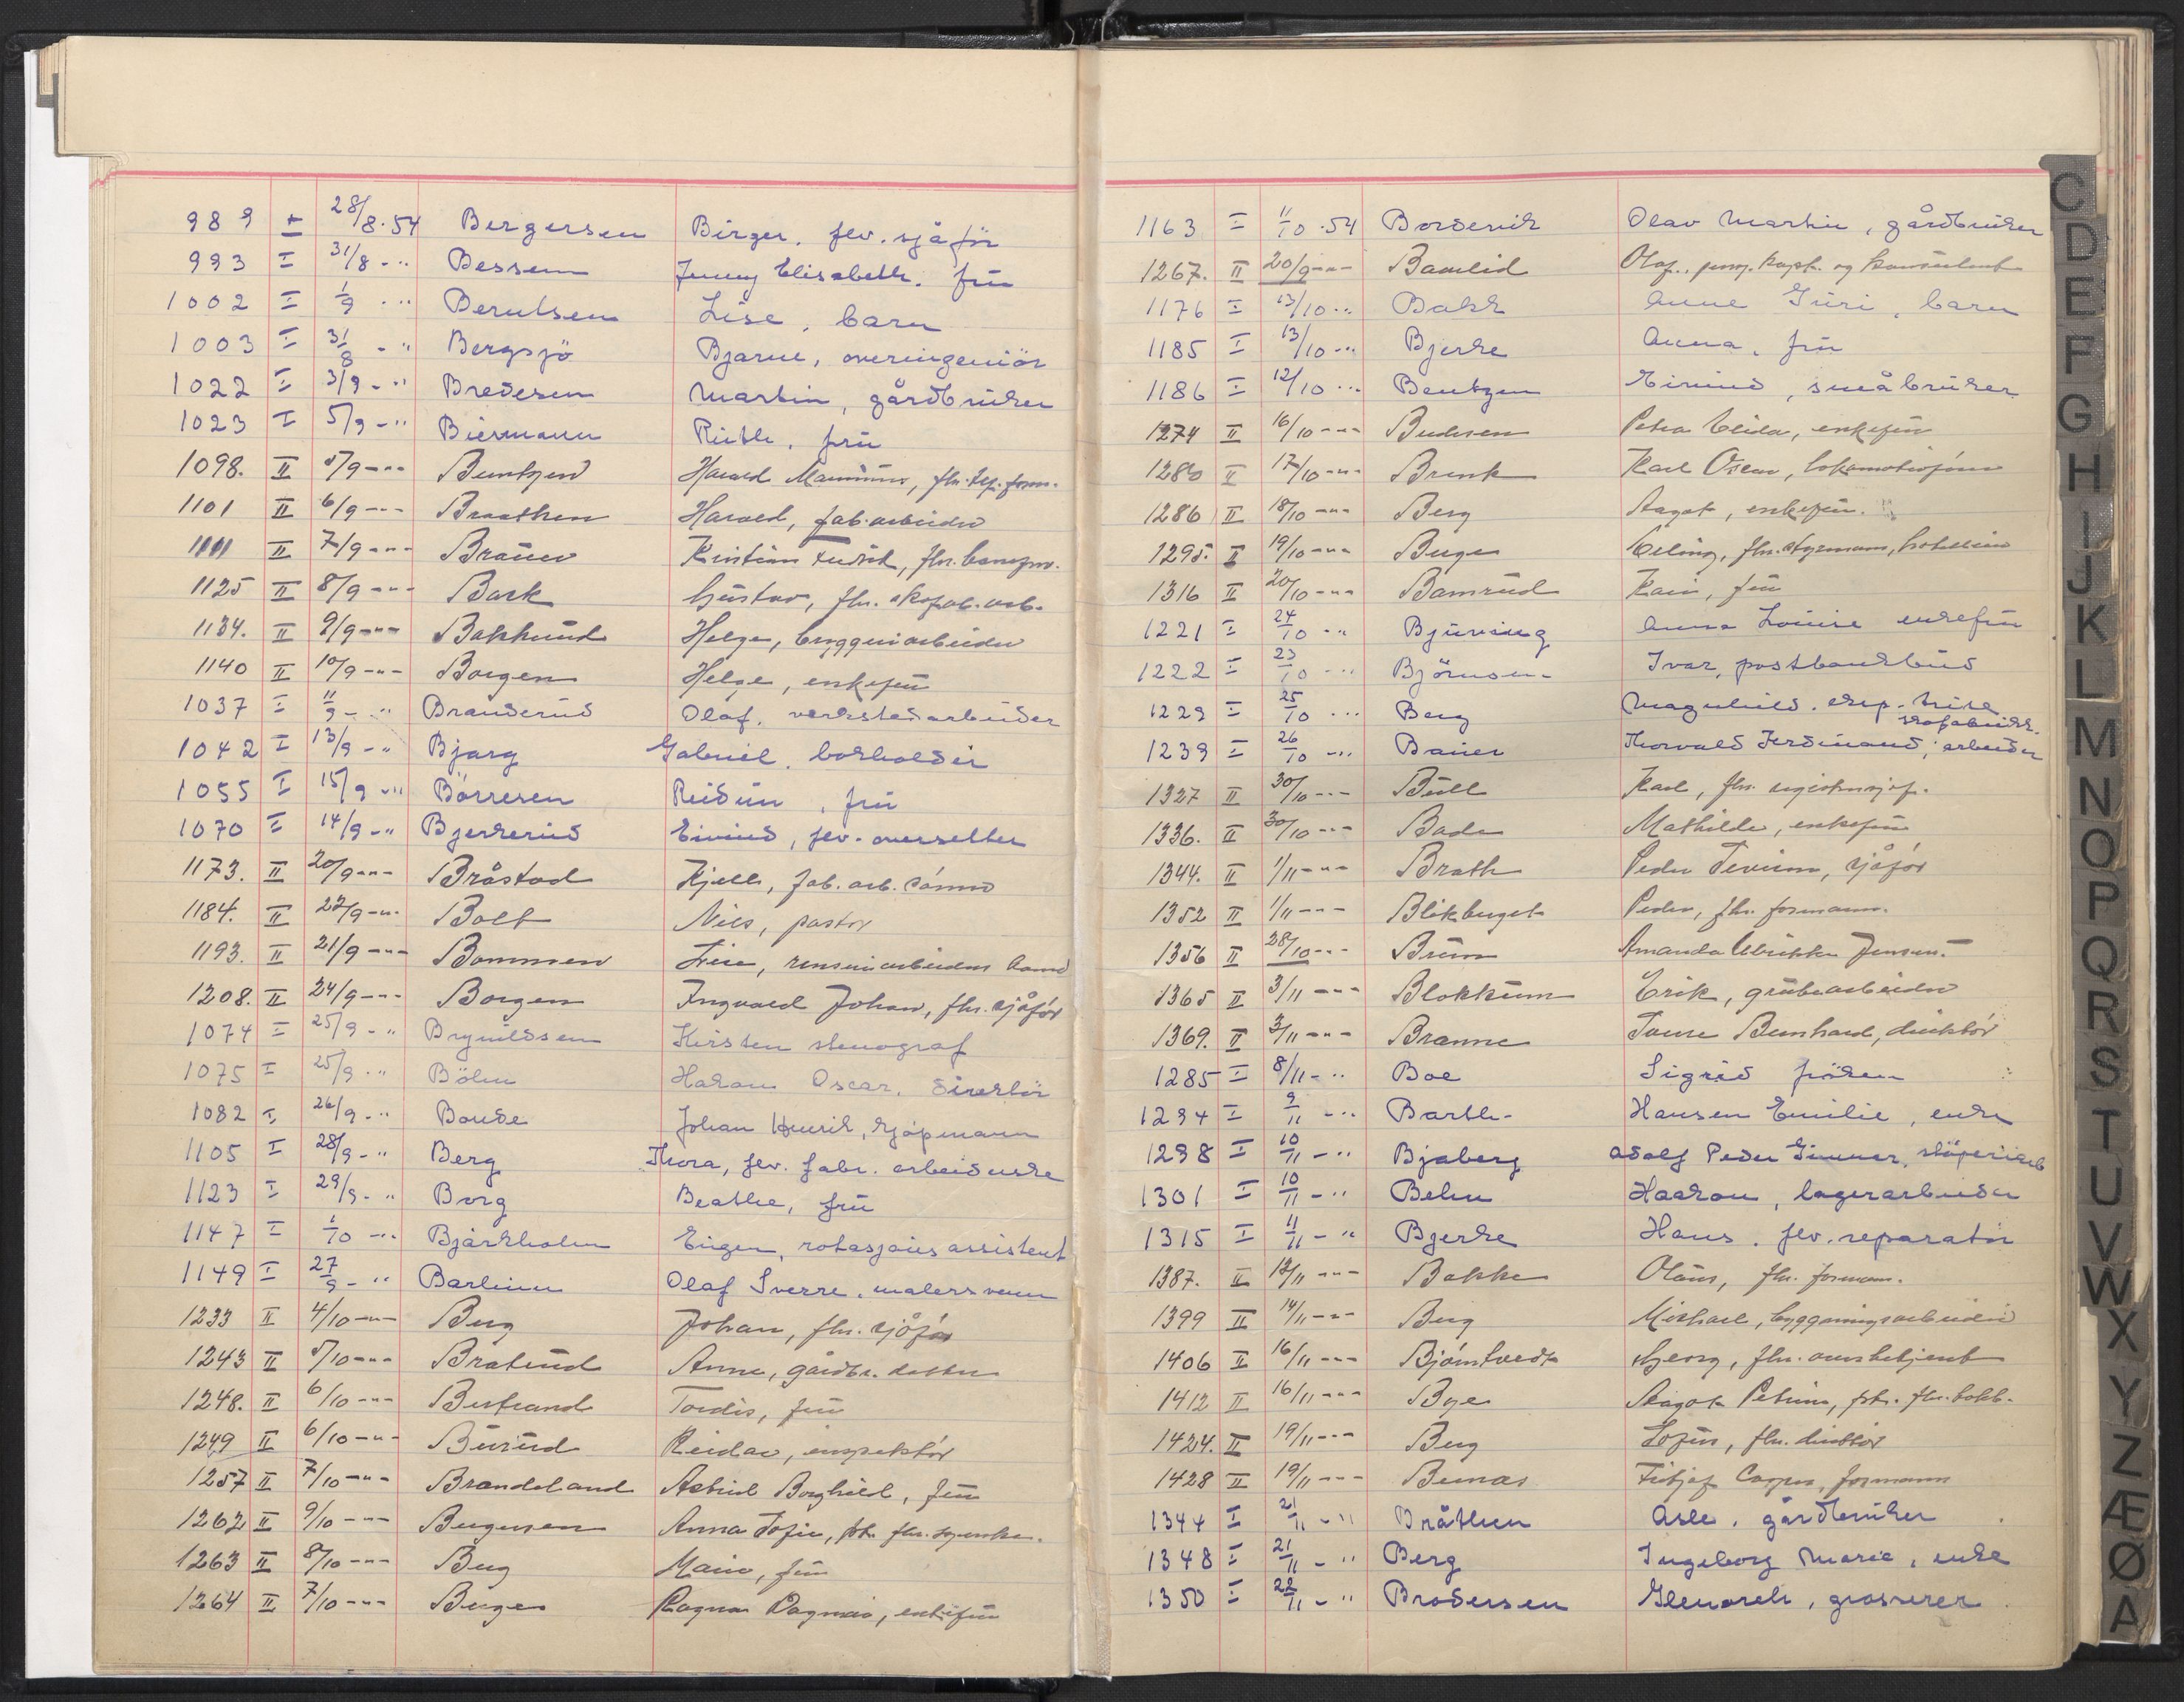 989 I 28/8.54 Bergersen Birger, fev. sjåför
993 I 31/8 - " Bessem Jenny Elisabeth, frü
1002 I 1/9 - " Berntsen Lise, barn
1003 I 31/8 - " Bergsjö Bjarne, overingeniör
1022 I 3/9 - " Bredesen Martin, gårdbrüker
1023 I 5/9 - " Biermann Rüth, frü
1098. II 5/9 - " - Berntzen Harald, fhr. rep. form.
1101 II 6/9 - " - Braathen Harald, fab.arbeider
1111 II 7/9 - " - Braüer Kristian, fhr.
1125 II 8/9 - " - Bark Güstav, fhr. skofab. arb.
1134. II 9/9 - " - Bakklünd Helge, bryggeriarbeider
1140 II 10/9 - " - Borgen Helga, enkefrü
1037 I 11/9 - " Branderüd Olaf, verkstedarbeider
1042 I 13/9 - " Bjarg Gabriel, bokholder
1055 I 15/9 - " Börresen Reidün, frü
1070 I 14/9 - " Bjerkerüd Eivind, fev. oversetter
1173. II 20/9 - " - Bråstad Kjell, fab. arb. sönn
1184. II 22/9 - " - Bolt Nils, pastor
1193. II 21/9 - " - Bommen
1208. II 24/9 - " - Borgen Ingvald Johan, fhr. sjåför
1074 I 25/9 - " Brynildsen Kirsten stenograf
1075 I 25/9 - " Böhn Hakon Oscar, direktör
1082 I 26/9 - " Bonde Johan Henrik, kjöpmann
1105 I 28/9 - " Berg Thora, fev. fabr. arbeiderske
1123 I 29/9 - " Borg Beathe, frü
1147 I 1/10 - " Bjärkholm Eügen, rotasjonsassistent
1149 I 27/9 - " Barlinn Olaf Sverre, malersvenn
1233 II 4/10 - " - Berg Johan, fhr. sjåför
1243 II 5/10 - " - Bråterüd Anne, gårdbr. datter
1248. II 6/10 - " - Berstrand Tordis, frü
1249 II 6/10 - " - Bürüd Reidar, inspektör
1257 II 7/10 - " - Brandeland Astrid Borghild, frü
1262 II 9/10 - " - Bergersen Anna Sofie, fhr.
1263 II 8/10 - " - Berg Marie, frü
1264 II 7/10 - " - Berger Ragna Dagmar, enkefrü
1163 I 11/10.54 Bordervik Olav Martin, gårdbrüker
1267. II 20/9 - " - Baarlid Olaf, og konsülent
1176 I 13/10 - " Bakk Anne Güri, barn
1185 I 13/10 - " Bjerke Anna, frü
1186 I 12/10 - " Bentzen Eivind, småbrüker
1274 II 16/10 - " - Berntsen Petra, enkefrü
1280 II 17/10 - " - Brenk Karl Oscar, lokomotivförer
1286 II 18/10 - " - Berg Aagot, enkefrü.
1295. II 19/10 - " - Berger Erling, fhr. styrmann,
1316 II 20/10 - " - Bamrüd Kari, frü
1221 I 24/10 - " Bjürving Anna Loüise enkefrü
1222 I 23/10 - " Björnsen Ivar, postbankbüd
1229 I 25/10 - " Berg Magnhild, eksp.
skofabrikk.
1239 I 26/10 - " Baüer Thorvald Ferdinand, arbeider
1327 II 30/10 - " - Büll Karl, fhr.
1336. II 30/10 - " - Bade Mathilde, enkefrü
1344. II 1/11 - " - Brath Peder, sjåför
1352 II 1/11 - " - Blikberget Peder, fhr. formann.
1356 II 28/10 - " - Brün Amanda Ulrikke Jensen.
1365 II 3/11 - " - Blokküm Erik, grübearbeider
1369. II 3/11 - " - Branne Bernhard, direktör
1285 I 8/11 - " Boe Sigrid fröken
1294 I 9/11 - " Barth- Hansen Emilie, enke
1298 I 10/11 - " Bjaberg Adolf Peder,
1301 I 10/11 - " Behn Haakon, lagerarbeider
1315 I 11/11 - " Bjerke Hans, fev. reparatör
1387. II 12/11 - " - Bakke Olaüs, fhr. formann.
1399 II 14/11 - " - Berg Michael, bygningsarbeider
1406 II 16/11 - " - Björntvedt Georg, fhr. overbetjent
1412 II 16/11 - " - Bye Aagot Petrine, fhr.
1424. II 19/11 - " - Berg fhr. direktör
1428 II 19/11 - " - Bernas Fritjof Casper, formann
1344 I 21/11 - " Bråthen Asle, gårdbrüker
1348 I 21/11 - " Berg Ingeborg Marie, enke
1350 I 22/11 - " Brodersen grosserer
C
D
E
F
G
H
I
J
K
L
M
N
O
P
Q
R
S
T
U
V
W
X
Y
Z
Æ
Ø
A